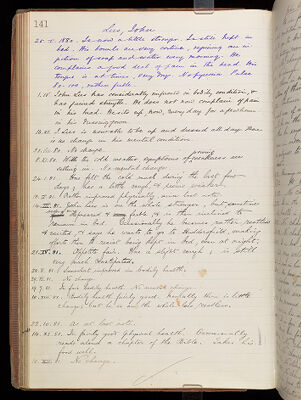 141
Lees, John
20. 5. 1880. Is now a little stronger. Is still kept in
bed. His bowels are very costive, requiring an in-
jection of soap and water every morning. He
complains a good deal of pain in the head. His
tongue is at times, very dry. No Pyrexia. Pulse
80-100, rather feeble.
John Lees has considerably improved in bodily condition, &
has gained strength. He does not now complain of pain
in his head. He sits up, now, every day for a few hours
in his dressing gown.
Lees is now able to be up and dressed all day. There
is no change in his mental condition.
No change.
With the colder weather symptoms of general weakness are
setting in. No mental change.
24. 1. 81. Has felt the cold much during the last few
days, has a little cough, & seems weaker.
Rather improved physically since last note.
John Lees is on the whole stronger, but sometimes
depressed & feeble, & is then inclined to
remain in bed. Occasionally he becomes rather restless
& excited, & says he wants to go to Huddersfield, making
efforts then to resist being kept in bed, even at night.
Appetite fair. Has a slight cough, is
very much
Somewhat improved in bodily health.
No change.
19. 7. 81. In fair bodily health. No mental change.
Bodily health fairly good. Mentally there is little
change, but he is on the whole less restless.
22. 10. 81. As at last note.
In fairly good physical health. Occasionally
reads aloud a chapter of the Bible. Takes his
food well.
No change.